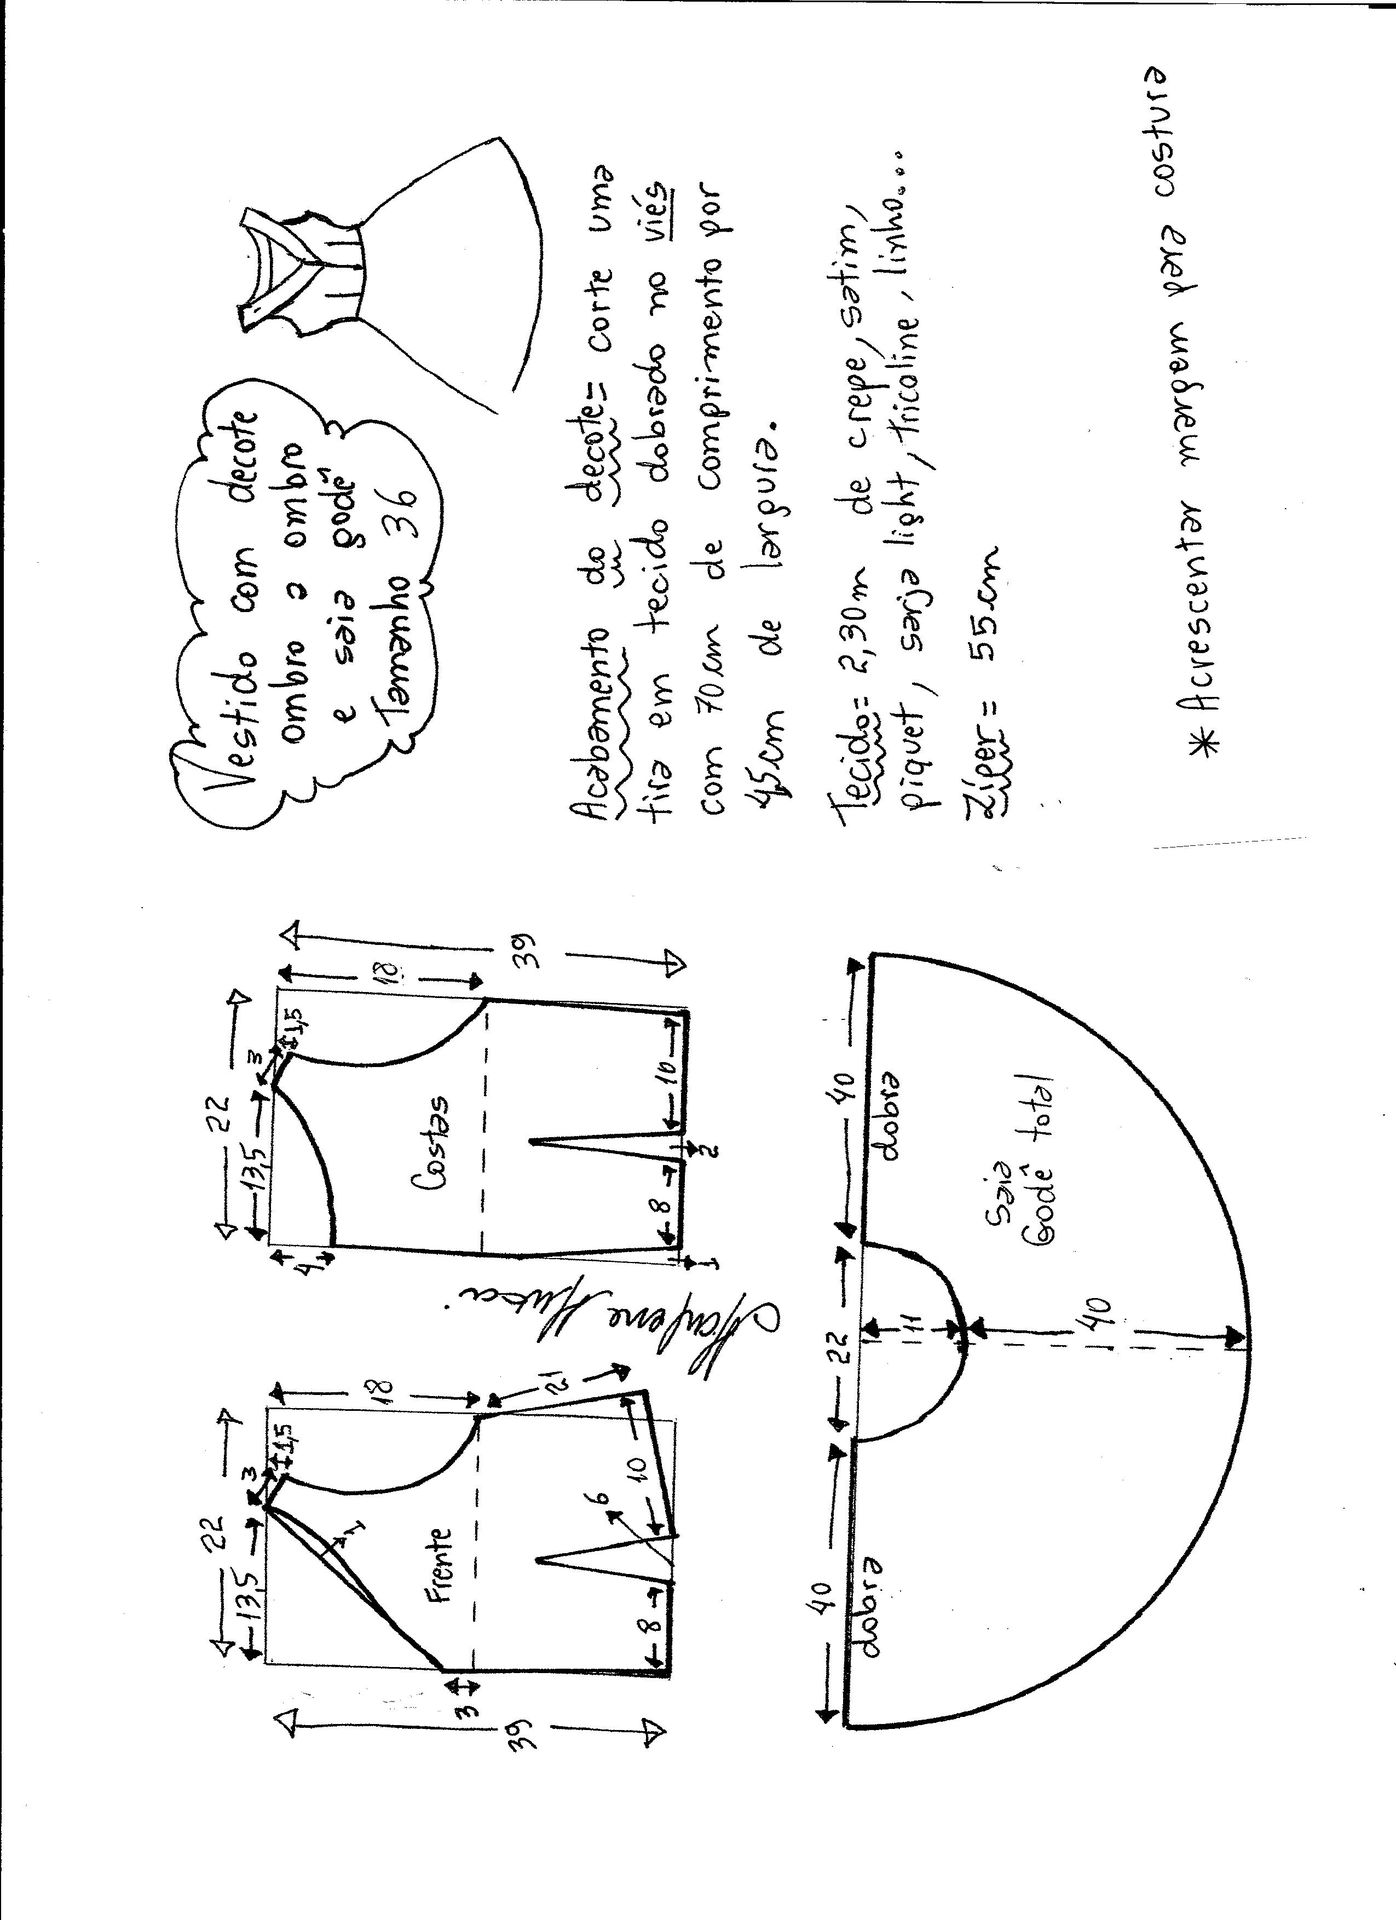 Vestido com decote
ombro a ombro
e saia godê
Tamanho 36
Acabamento do decote = corte uma
tira em tecido dobrado no viés
com 70cm de comprimento por
4,5cm de largura.
Tecido = 2,30m de crepe, satim,
piquet, sarja light, tricoline, linho...
Zíper = 55cm
* Acrescentar margem para costura
22
13,5
3
1,5
18
21
39
3
1
Frente
8
6
10
Marlene Mukai
22
13,5
3
1,5
18
39
4
Costas
8
2
10
1
40
22
40
dobra
11
dobra
40
Saia
Godê total